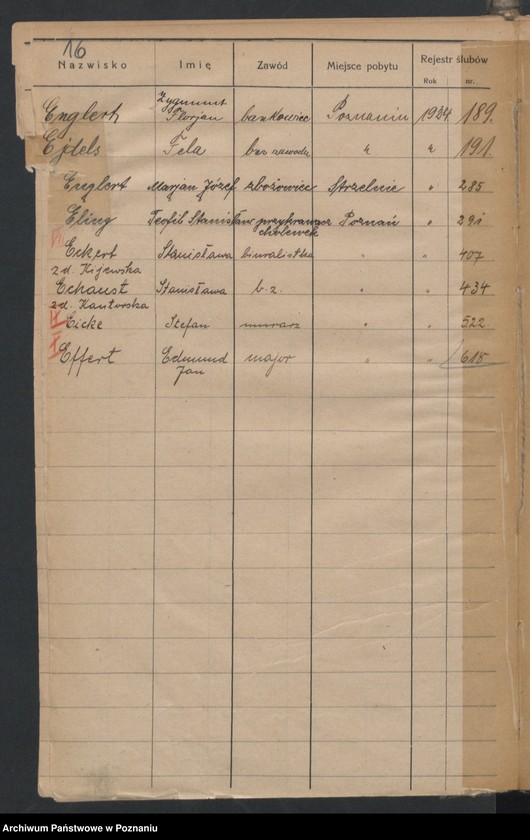 16
Nazwisko Imię Zawód Miejsce pobytu Rejestr ślubów
Rok nr.
Zygmunt
Englert Florjan bankowiec Poznaniu 1934 189.
Ejdels Fela bez zawodu " " 191.
Englert Marjan Józef zbożowiec Strzelnie " 285
Eling Teofil Stanisław przykrawacz Poznań " 291
cholewek
VII
Eckert Stanisława biuralistka " " 407
z d. Kijewska
Echaust Stanisława b. z. " " 434
z d. Kantorska
IX Eicke Stefan murarz " " 522
XI Effert Edmund major " " 615
Jan
Archiwum Państwowe w Poznaniu